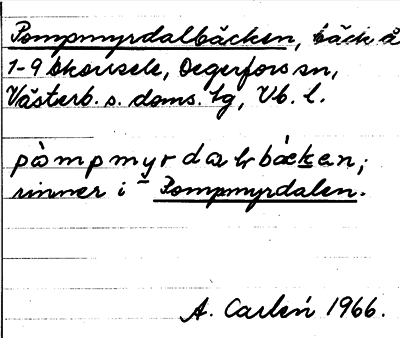 Pompmyrdalbäcken, bäck å
1-9 Skorsele, Degerfors sn,
Västerb. s. doms. tg, Vb. l.
pȧmpmyrdalrbäcken;
rinner i Pompmyrdalen.
A. Carlén 1966.